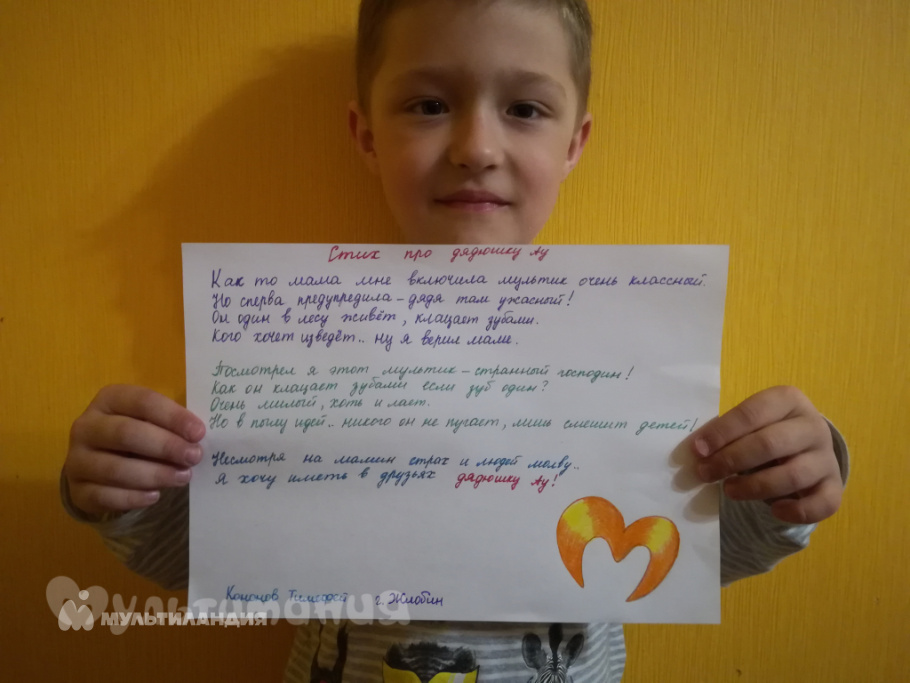 Стих про дядюшку Ау
Как то мама мне включила мультик очень классный.
Но сперва предупредила - дядя там ужасный!
Он один в лесу живёт, клацает зубами.
Кого хочет изведёт.. ну я верил маме.
Посмотрел я этот мультик - странный господин!
Как он клацает зубами если зуб один?
Очень милый, хоть и лает.
Но в пылу идей.. никого он не пугает, лишь смешит детей!
Несмотря на мамин страх и людей молву..
Я хочу иметь в друзьях дядюшку Ау!
Тимофей г. Жлобин
Мультимания
МУЛЬТИЛАНДИЯ